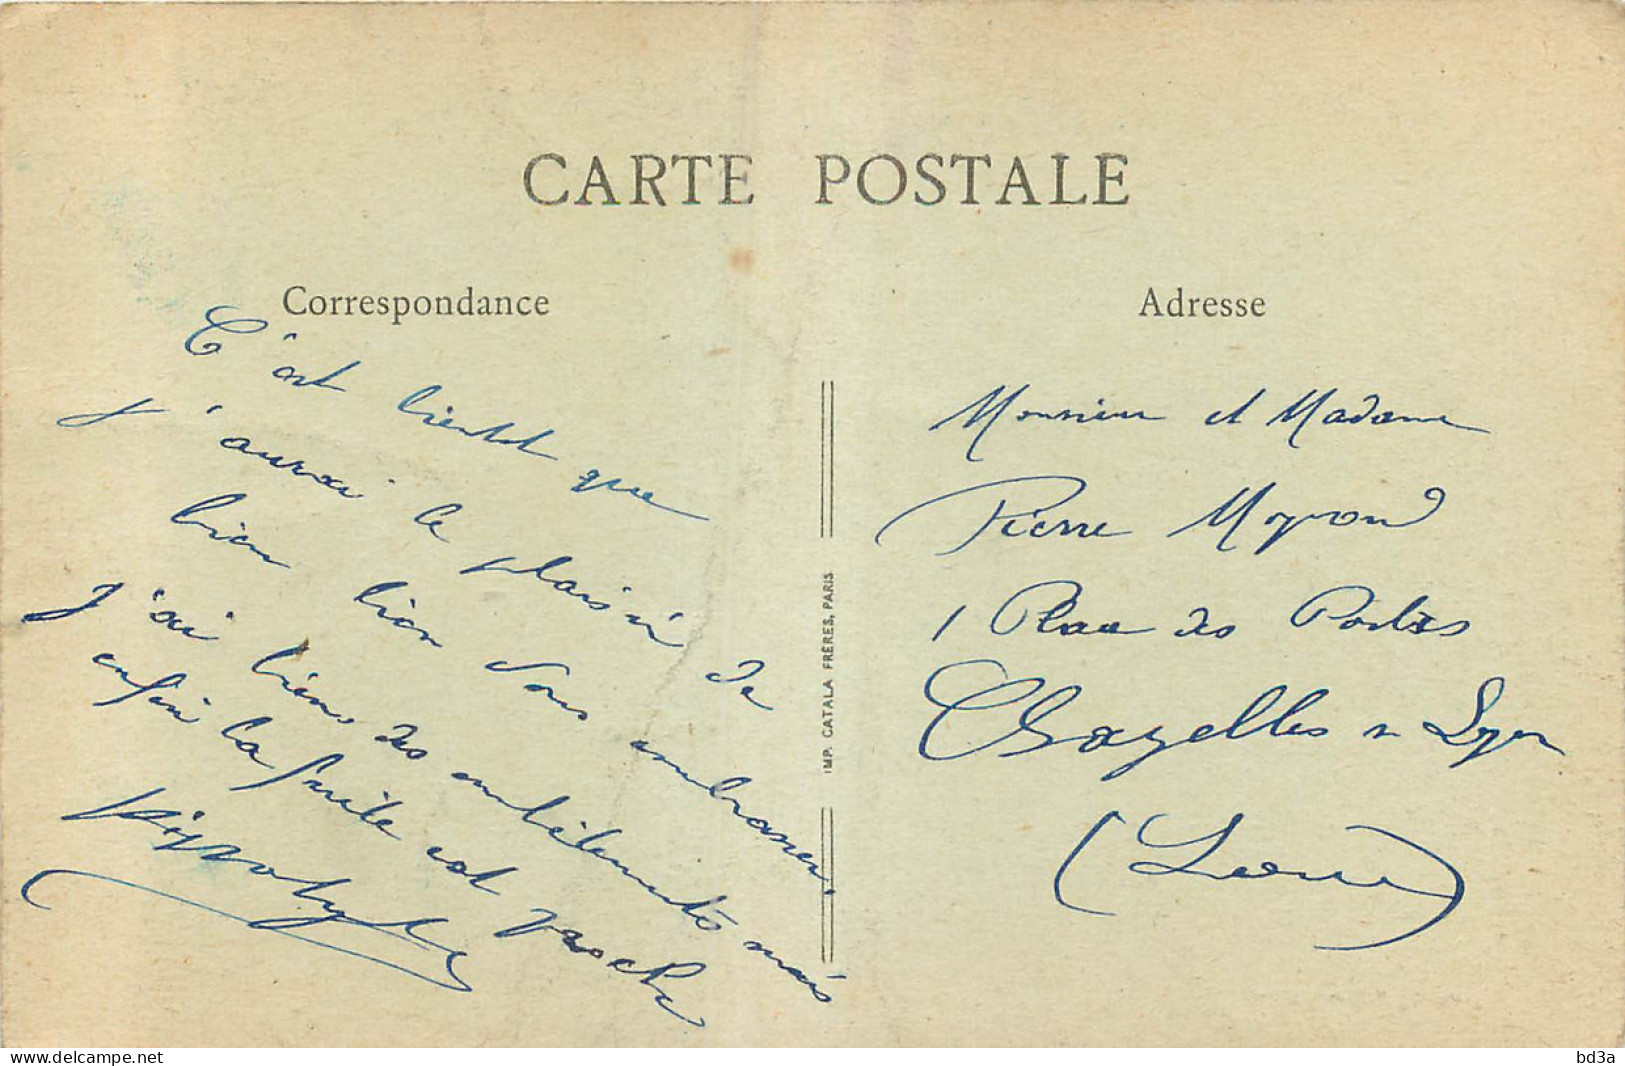 CARTE POSTALE
Correspondance
C'est bientôt que
j'aurai le plaisir de
bien bien vous embrasser.
J'ai bien des embêtements mais
enfin la fuite est proche
Hippolyte
IMP. CATALA FRÈRES, PARIS
Adresse
Monsieur et Madame
Pierre
1 Place des Portes
Chazelles s Lyon
(Loire)
www.delcampe.net
bd3a